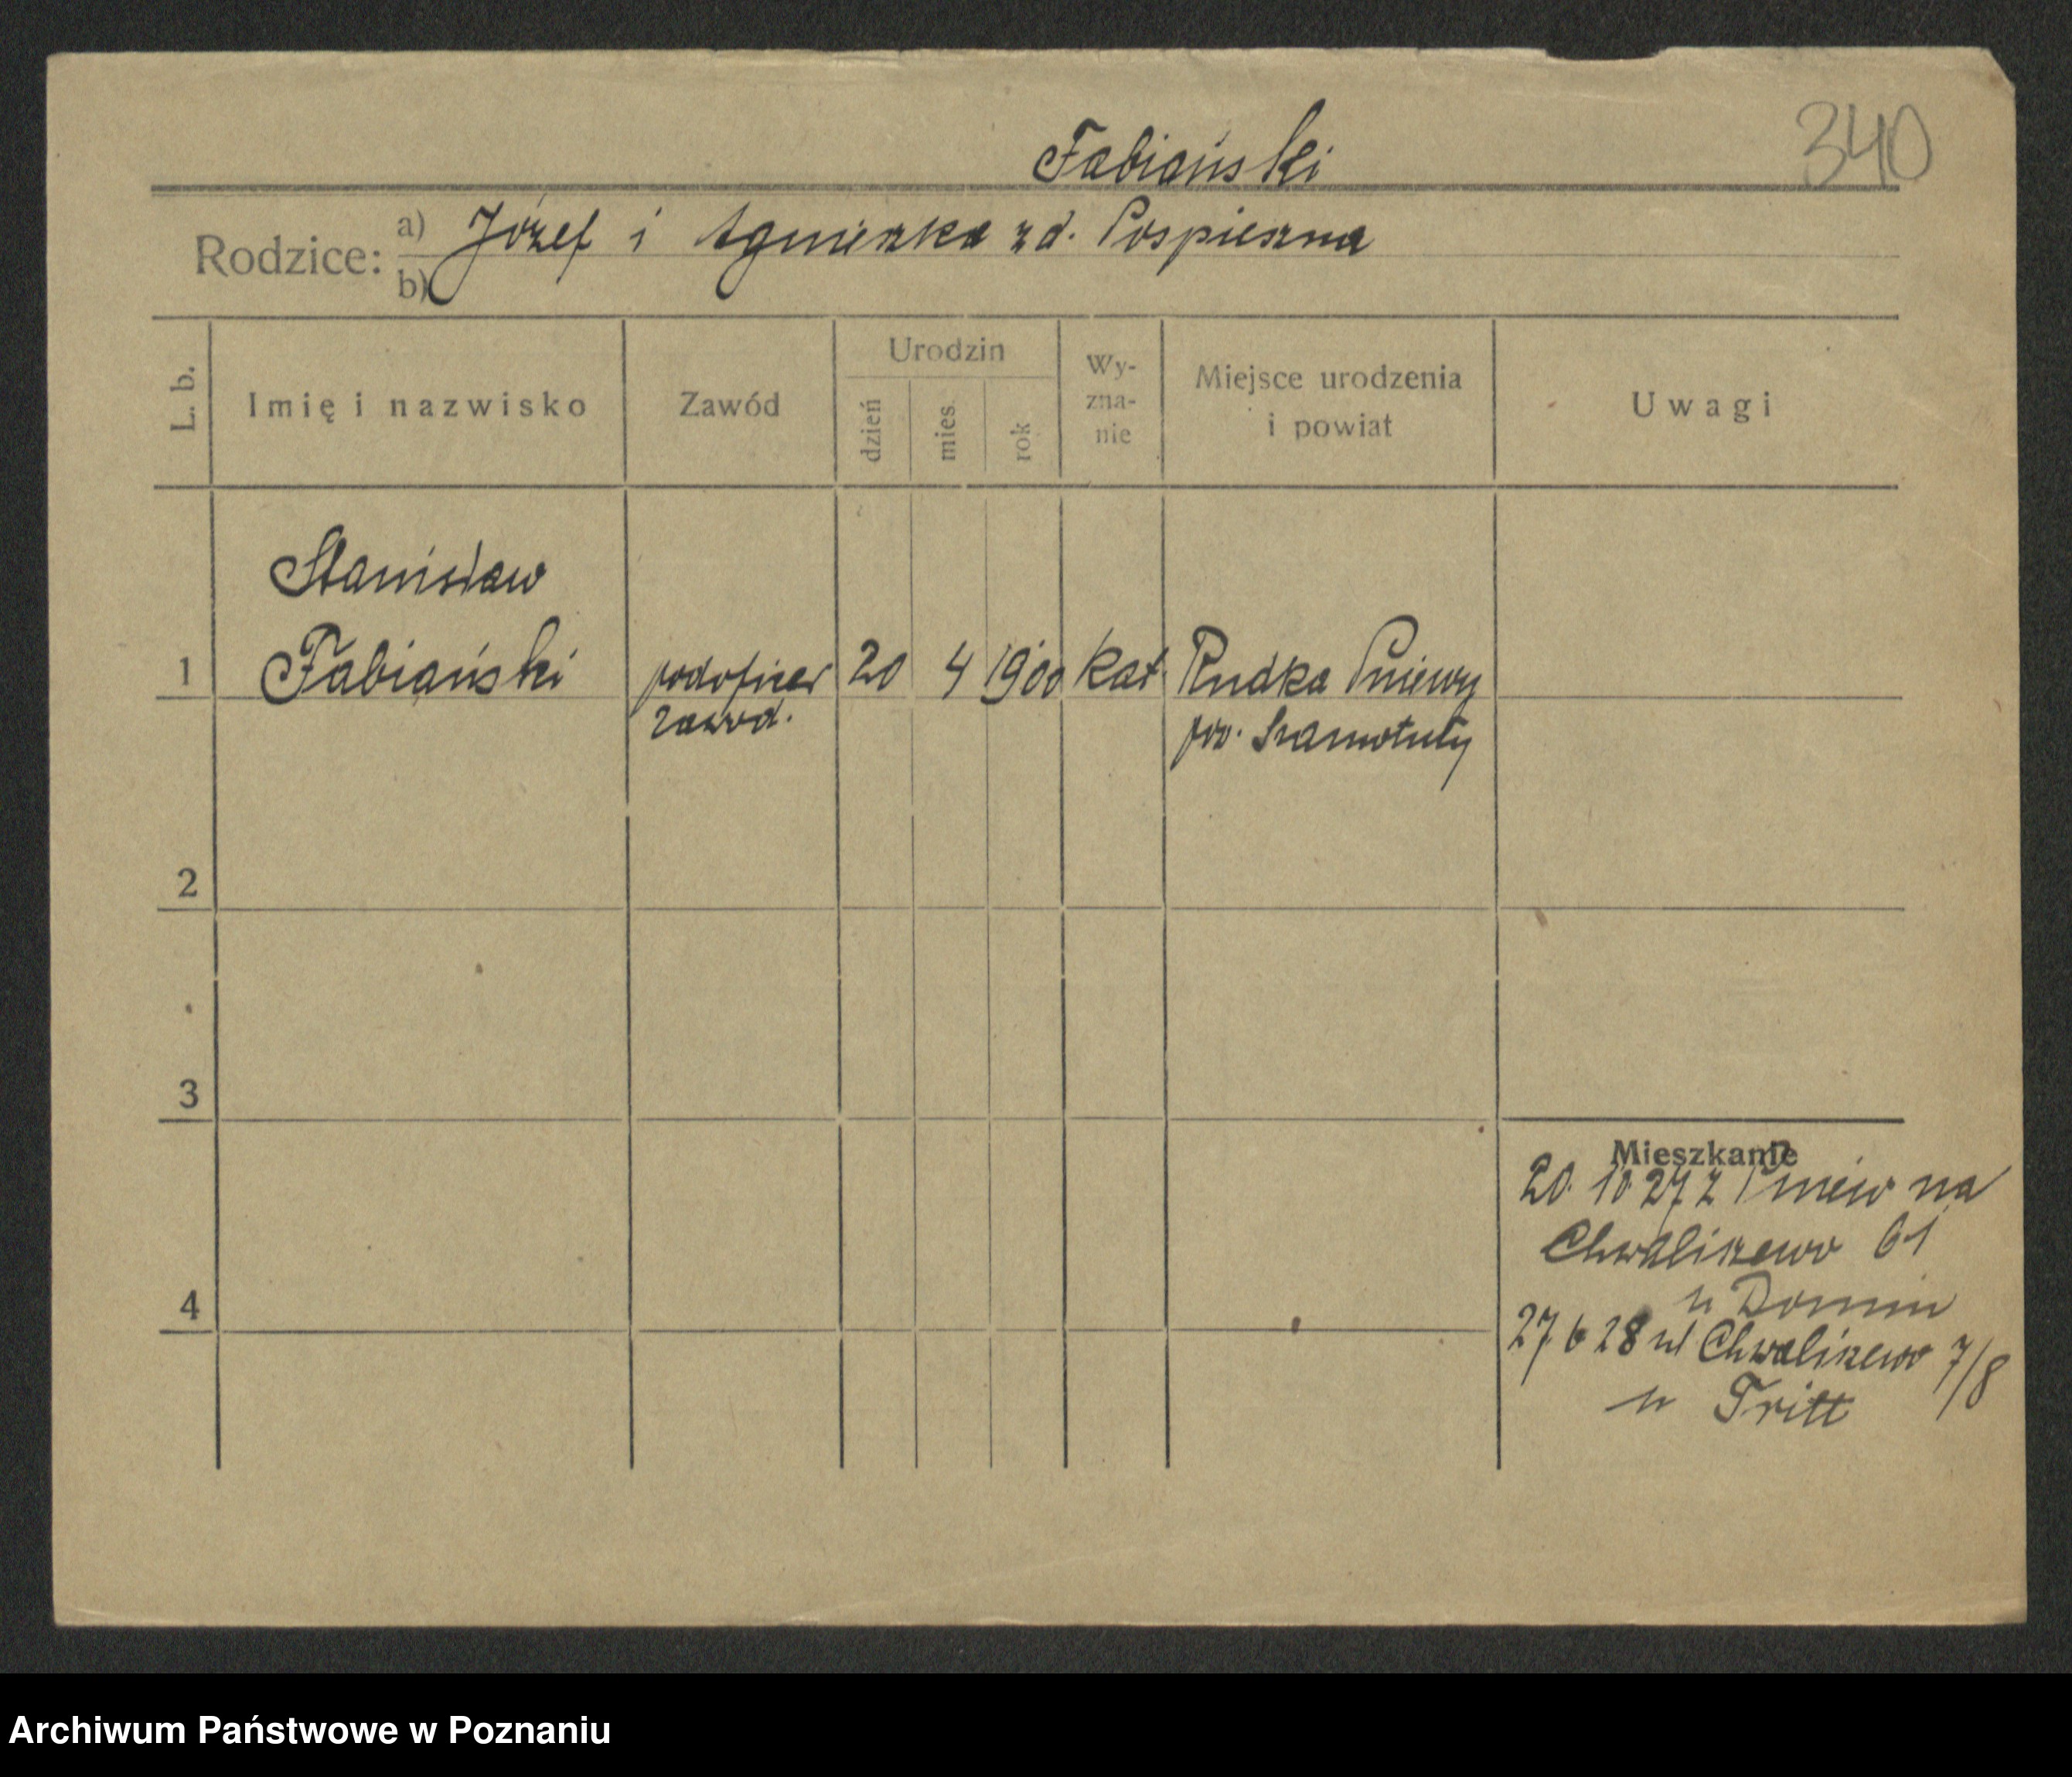 340
Fabiański
Rodzice: a) Józef i Agnieszka zd. Pospieszna
b)
L. b.
Imię i nazwisko
Zawód
Urodzin
dzień
mies.
rok
Wy-
zna-
nie
Miejsce urodzenia
i powiat
Uwagi
Stanisław
1 Fabiański podoficer 20 4 1900 kat. Rudka Pniewy
zawod. pow. Szamotuły
2
3
4
Mieszkanie
20. 10 27 z Pniew na
Chwaliszewo 61
u Domin
27 6 28 ul Chwaliszewo 7/8
u Tritt
Archiwum Państwowe w Poznaniu